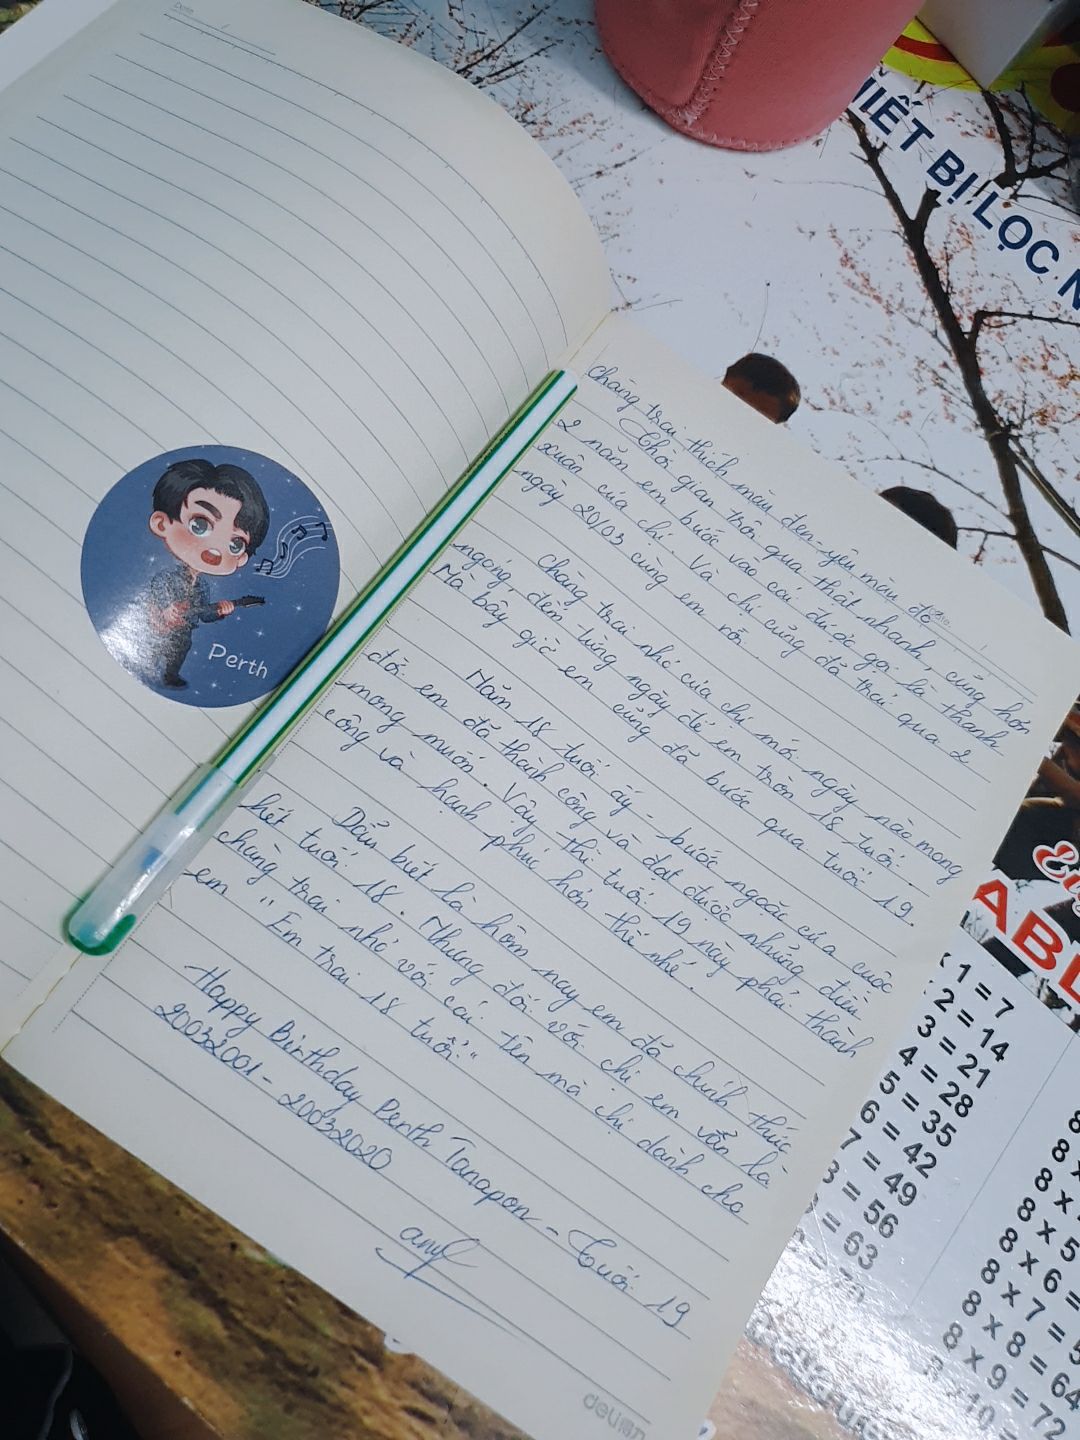 Date
Perth
chàng trai thích màu đen - yêu màu đỏ
Thời gian trôi qua thật nhanh, cũng hơn
2 năm em bước vào cái được gọi là thanh
xuân của chị. Và chị cũng đã trải qua 2
ngày 20/03 cùng em rồi.
Chàng trai nhỏ của chị mới ngày nào mong
ngóng, đếm từng ngày để em tròn 18 tuổi.
Mà bây giờ em cũng đã bước qua tuổi 19.
Năm 18 tuổi ấy - bước ngoặc của cuộc
đời em đã thành công và đạt được những điều
mong muốn. Vậy thì tuổi 19 này phải thành
công và hạnh phúc hơn thế nhé.
Dẫu biết là hôm nay em đã chính thức
hết tuổi 18. Nhưng đối với chị em vẫn là
chàng trai nhỏ với cái tên mà chị dành cho
em "Em trai 18 tuổi."
Happy Birthday Perth Tanapon - Tuổi 19
20032001 - 20032020
deli
THIẾT BỊ LỌC N
ABL
x 1 = 7
2 = 14
3 = 21
4 = 28
5 = 35
6 = 42
7 = 49
8 = 56
= 63
8
8 x
8 x
8 x 5
8 x 6 =
8 x 7 = 5
8 x 8 = 64
8 x 9 = 72
10 =